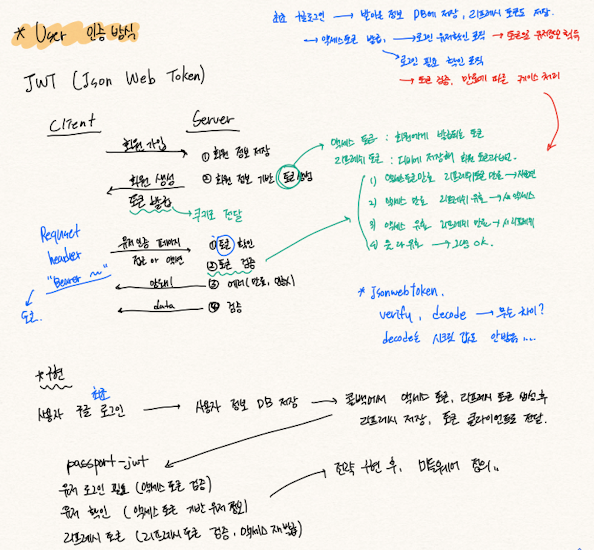 * User 인증 방식
최초 구글로그인 → 받아온 정보 DB에 저장, 리프레시 토큰도 저장.
→ 액세스토큰 발급, → 로그인 유저확인 로직 → 토큰으로 유저정보 획득
→ 로그인 필요 확인 로직
→ 토큰 검증, 만료에 따른 케이스 처리
JWT (Json Web Token)
Client
Server
회원 가입
① 회원 정보 저장
회원 생성
② 회원 정보 기반 토큰 생성
토큰 발급
쿠키로 전달
액세스 토큰 : 회원에게 발급되는 토큰
리프레쉬 토큰 : 디비에 저장해
1) 액세스토큰 만료 리프레쉬토큰 만료 →
2) 액세스 만료 리프레쉬 유효 → 액세스
3) 액세스 유효 리프레쉬 만료 → 리프레쉬
4) 둘 다 유효 → 그냥 ok.
Request
header
"Bearer ~"
토큰.
유저 인증 페이지
접근 or 액션
① 토큰 확인
② 토큰 검증
③ 에러 (만료,
data
④ 검증
* Jsonwebtoken.
verify, decode → 무슨 차이?
decode는 시크릿 값도 안받음...
* 구현
최초
사용자 구글 로그인 → 사용자 정보 DB 저장 → 콜백에서 액세스 토큰, 리프레시 토큰 생성후
리프레시 저장, 토큰 클라이언트로 전달.
passport-jwt
유저 로그인 필요 (액세스 토큰 검증)
유저 확인 (액세스 토큰 기반 유저 정보)
리프레시 토큰 (리프레시 토큰 검증, 액세스 재발급)
전략 구현 후, 미들웨어 정의..